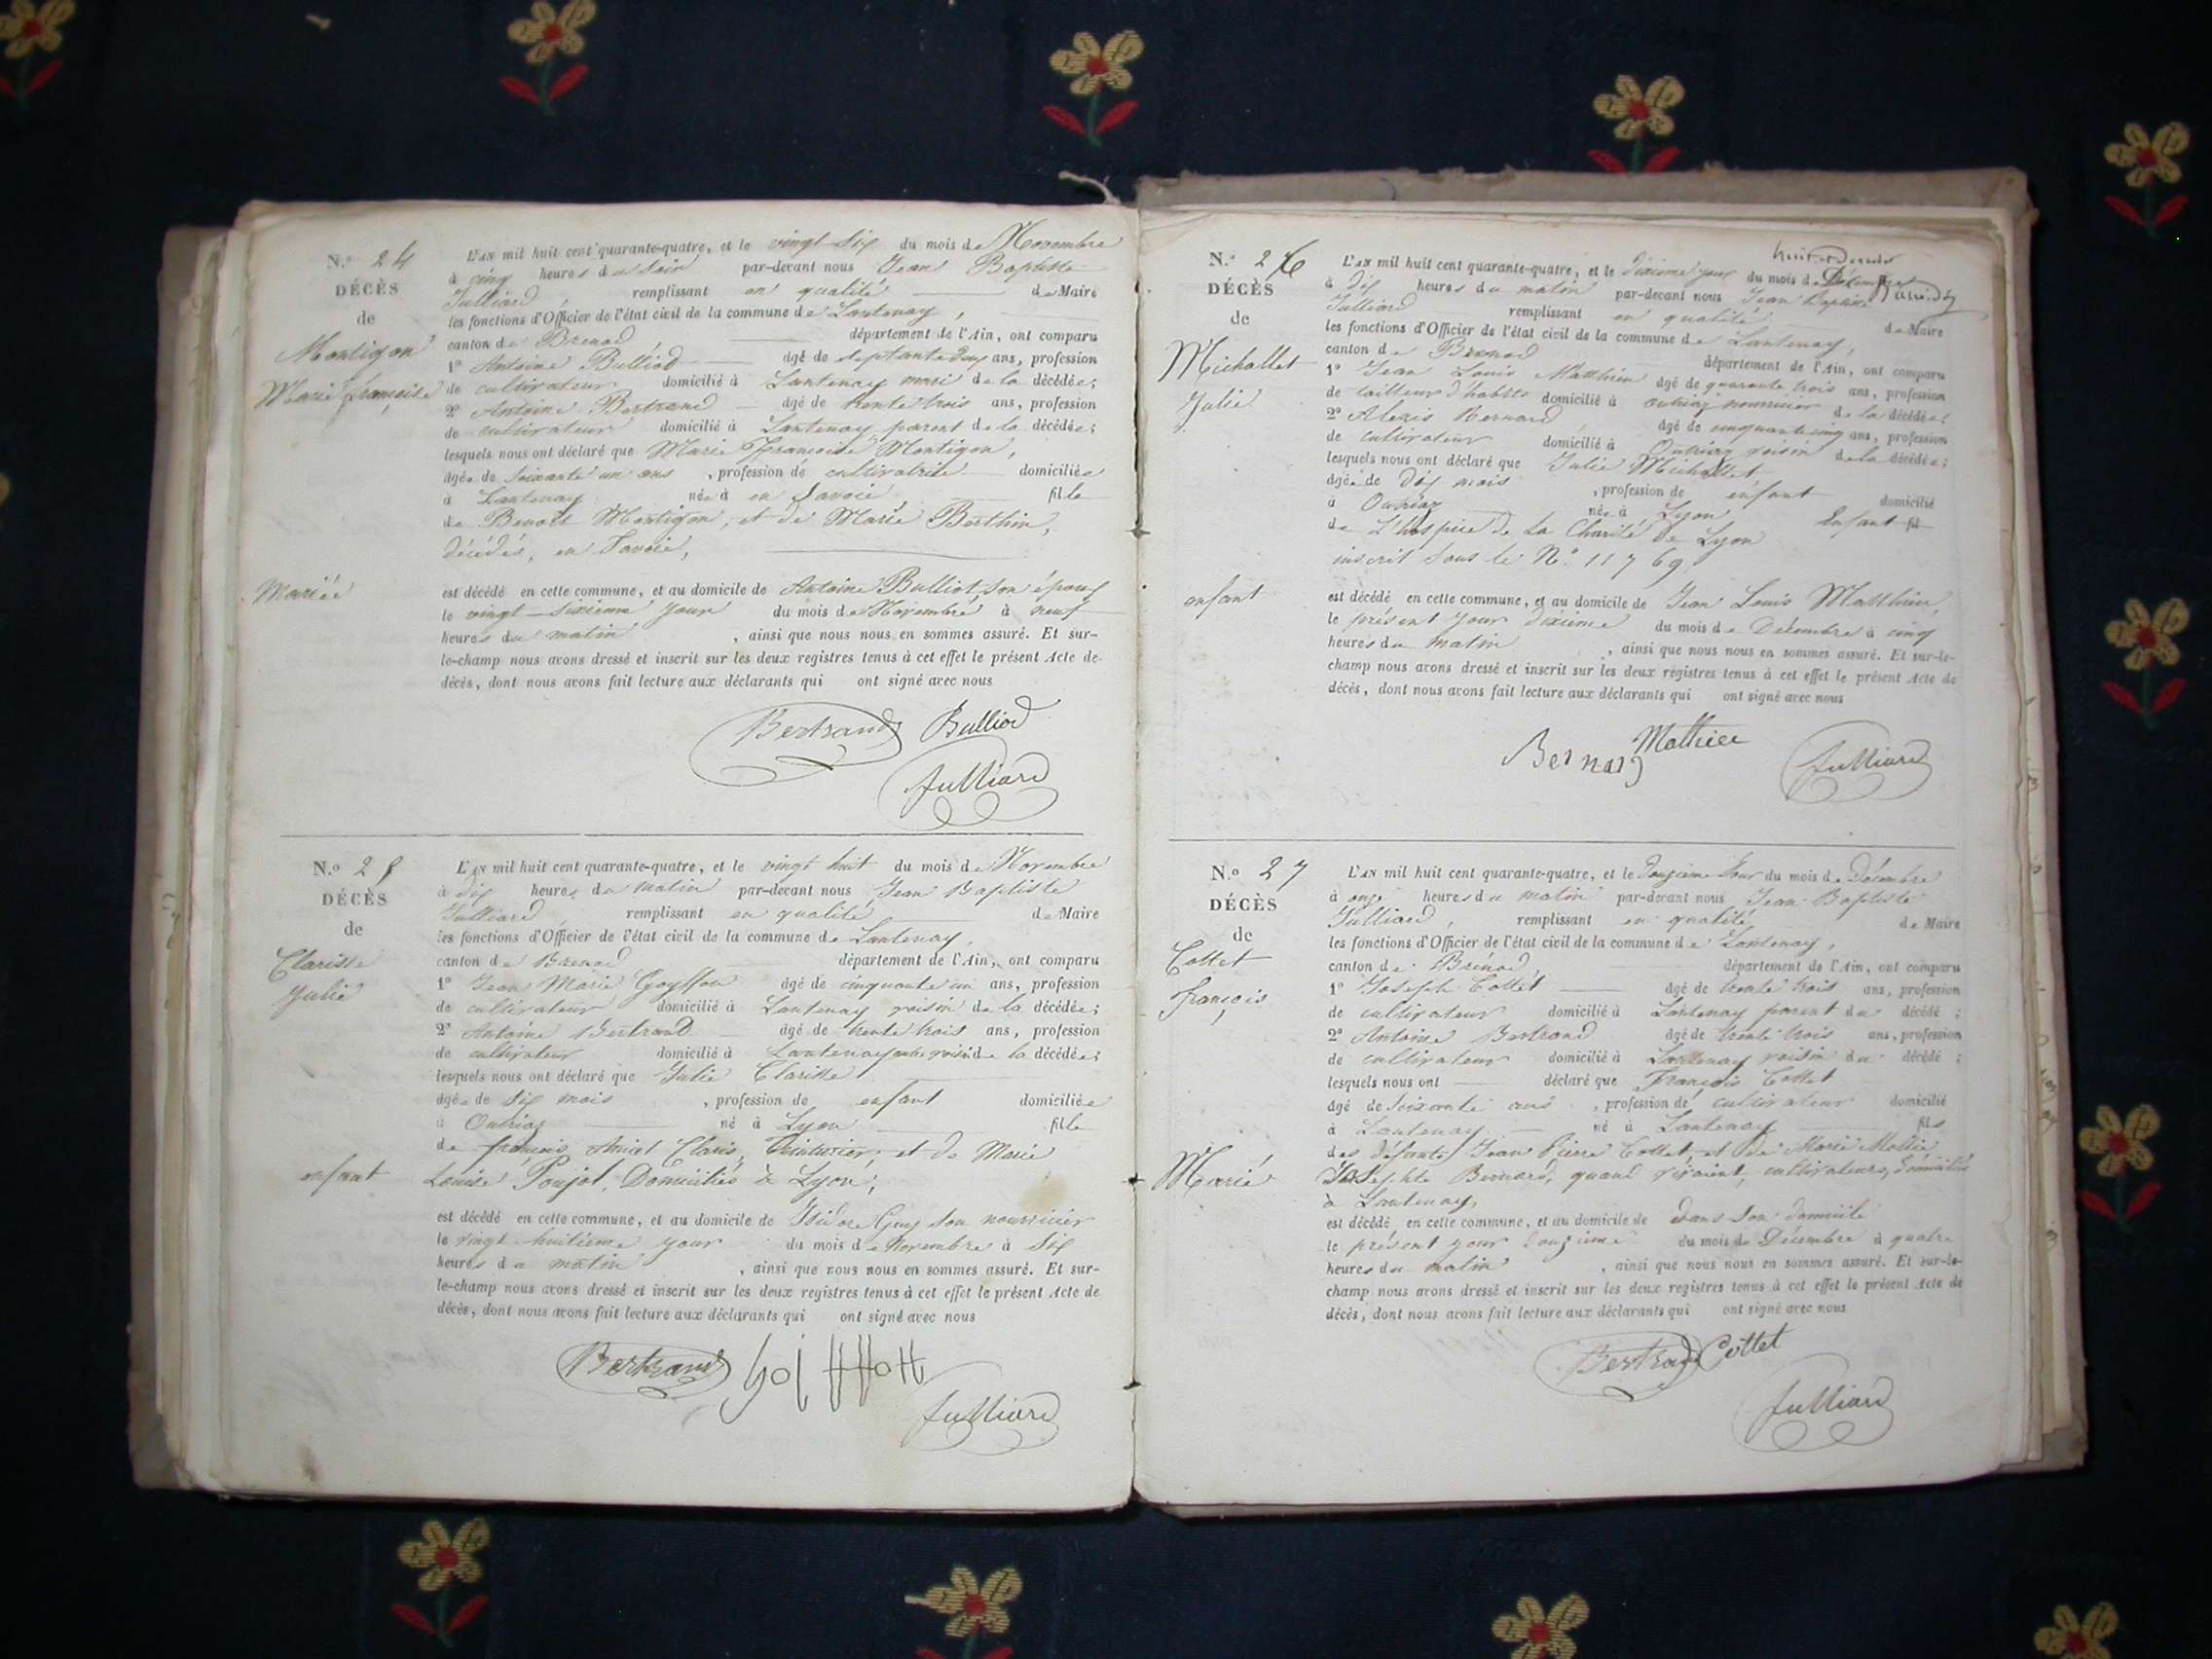 N.º 24
DÉCÈS
de
Montigon
Marie françoise
Mariée
L'AN mil huit cent quarante-quatre, et le vingt-six du mois de Novembre
à cinq heures du soir par-devant nous Jean Baptiste
Julliard remplissant en qualité de Maire
les fonctions d'Officier de l'état civil de la commune de Lantenay,
canton de Brenod, département de l'Ain, ont comparu
1º Antoine Bulliod âgé de septante deux ans, profession
de cultivateur domicilié à Lantenay mari de la décédée;
2º Antoine Bertrand âgé de trente trois ans, profession
de cultivateur domicilié à Lantenay parent de la décédée;
lesquels nous ont déclaré que Marie Françoise Montigon,
âgée de soixante un ans, profession de cultivatrice domiciliée
à Lantenay née à en Savoie fille
de Benoit Montigon, et de Marie Berthin,
décédés, en Savoie,
est décédé en cette commune, et au domicile de Antoine Bulliot son époux
le vingt-sixième jour du mois de Novembre à neuf
heures du matin, ainsi que nous nous en sommes assuré. Et sur-
le-champ nous avons dressé et inscrit sur les deux registres tenus à cet effet le présent Acte de
décès, dont nous avons fait lecture aux déclarants qui ont signé avec nous
Bertrand Bulliod
Julliard
N.º 25
DÉCÈS
de
Clarisse
Julie
enfant
L'AN mil huit cent quarante-quatre, et le vingt huit du mois de Novembre
à dix heures du matin par-devant nous Jean Baptiste
Julliard remplissant en qualité de Maire
les fonctions d'Officier de l'état civil de la commune de Lantenay,
canton de Brenod département de l'Ain, ont comparu
1º Jean Marie Goyffon âgé de cinquante un ans, profession
de cultivateur domicilié à Lantenay voisin de la décédée;
2º Antoine Bertrand âgé de trente trois ans, profession
de cultivateur domicilié à Lantenay voisin de la décédée;
lesquels nous ont déclaré que Julie Clarisse
âgée de six mois, profession de enfant domiciliée
à Outriaz né à Lyon fille
de françois Claris, et de Marie
Louise Poujol, Domiciliés à Lyon,
est décédé en cette commune, et au domicile de Isidore Guy son nourricier
le vingt-huitième jour du mois de Novembre à six
heures du matin, ainsi que nous nous en sommes assuré. Et sur-
le-champ nous avons dressé et inscrit sur les deux registres tenus à cet effet le présent Acte de
décès, dont nous avons fait lecture aux déclarants qui ont signé avec nous
Bertrand
Julliard
N.º 26
DÉCÈS
de
Michallet
Julie
enfant
L'AN mil huit cent quarante-quatre, et le dixième jour du mois de Décembre
à dix heures du matin par-devant nous Jean Baptiste
Julliard remplissant en qualité de Maire
les fonctions d'Officier de l'état civil de la commune de Lantenay,
canton de Brenod département de l'Ain, ont comparu
1º Jean Louis Matthieu âgé de quarante trois ans, profession
de tailleur d'habits domicilié à outriaz nourricier de la décédée;
2º Alexis Bernard, âgé de cinquante cinq ans, profession
de cultivateur domicilié à Outriaz voisin de la décédée;
lesquels nous ont déclaré que Julie Michallet
âgée de dix mois, profession de enfant domicilié
à Outriaz née à Lyon Enfant fil
de L'hospice de la Charité de Lyon
inscrit sous le N.º 11769
est décédé en cette commune, et au domicile de Jean Louis Matthieu,
le présent jour dixième du mois de Décembre à cinq
heures du matin, ainsi que nous nous en sommes assuré. Et sur-le-
champ nous avons dressé et inscrit sur les deux registres tenus à cet effet le présent Acte de
décès, dont nous avons fait lecture aux déclarants qui ont signé avec nous
Bernard Mathieu
Julliard
N.º 27
DÉCÈS
de
Cottet
françois
Marié
L'AN mil huit cent quarante-quatre, et le Douzième Jour du mois de Décembre
à onze heures du matin par-devant nous Jean Baptiste
Julliard, remplissant en qualité de Maire
les fonctions d'Officier de l'état civil de la commune de Lantenay,
canton de Brénod, département de l'Ain, ont comparu
1º Joseph Cottet âgé de trente trois ans, profession
de cultivateur domicilié à Lantenay parent du décédé;
2º Antoine Bertrand âgé de trente trois ans, profession
de cultivateur domicilié à Lantenay voisin du décédé;
lesquels nous ont déclaré que François Cottet
âgé de Soixante ans, profession de cultivateur domicilié
à Lantenay né à Lantenay fils
des défunts Jean Pierre Cottet, et de Marie
Josephte Bernard, quand vivaient, cultivateurs, domiciliés
à Lantenay,
est décédé en cette commune, et au domicile de dans son domicile
le présent jour douzième du mois de Décembre à quatre
heures du matin, ainsi que nous nous en sommes assuré. Et sur-le-
champ nous avons dressé et inscrit sur les deux registres tenus à cet effet le présent Acte de
décès, dont nous avons fait lecture aux déclarants qui ont signé avec nous
Bertrand Cottet
Julliard